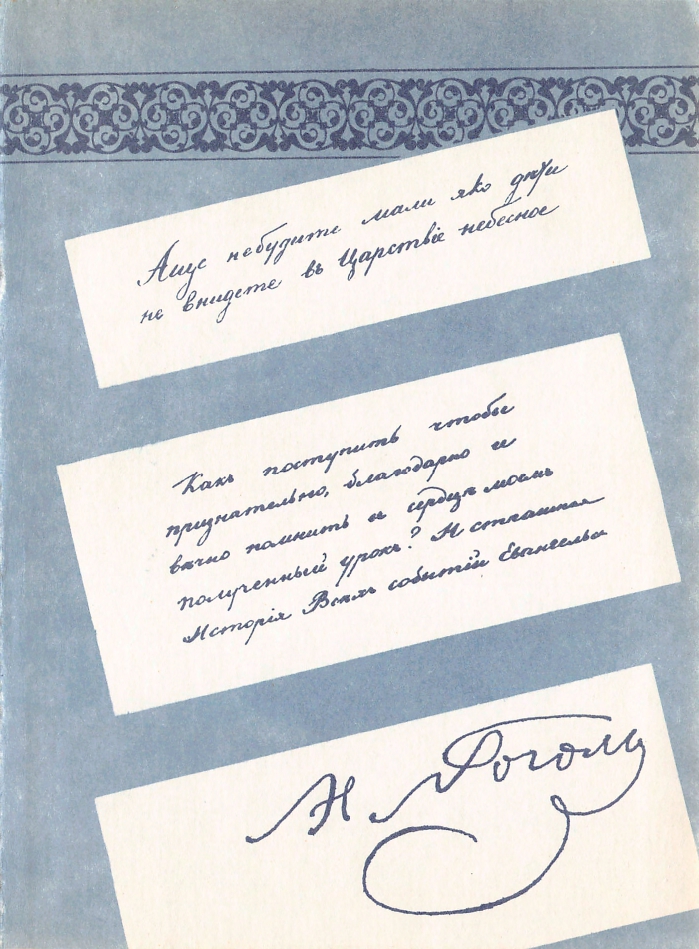 Аще небудите мали яко дѣти
не внидете въ Царствіе небесное
Какъ поступить чтобы
признательно, благодарно и
вѣчно помнить въ сердцѣ моемъ
полученный урокъ? И страшная
Исторія Всѣхъ событій Евангельс
Н. Гоголь